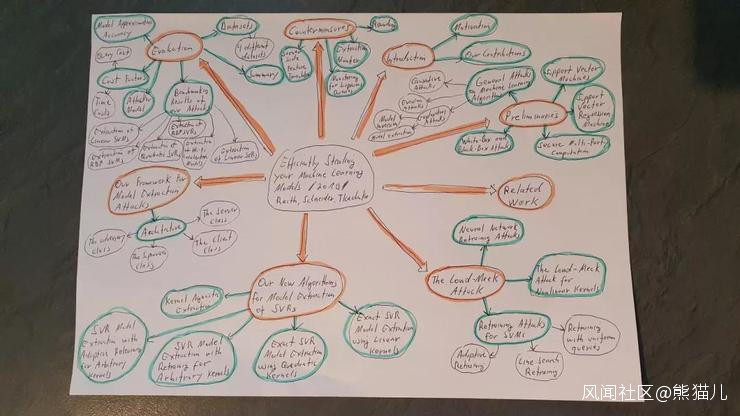 Efficiently Stealing
your Machine Learning
Models /2019/
Reith, Schneider, Tkachenko
Evaluation
Model Approximation
Accuracy
Query Cost
Cost Factors
Time
Costs
Attacker Model
Datasets
4 different
datasets
Summary
Benchmarking
Results of
our Attack
Extraction of
Linear SVMs
Extraction of
RBF SVMs
Extraction of
RBF SVRs
Extraction of
Quadratic SVRs
Extraction of Linear SVRs
Countermeasures
Rounding
Extraction
Monitor
Server
Side
Feature
Translation
Monitoring
for Suspicious
Queries
Introduction
Motivation
Our Contributions
Preliminaries
General Attacks
on Machine Learning
Algorithms
Causative
Attacks
Evasion
Attacks
Exploratory
Attacks
Model
Inversion
Model extraction
White-Box and
Black-Box Attack
Support Vector
Machines
Support
Vector
Regression
Machine
Secure Multi-Party
Computation
Related
Work
The Lowd-Meek
Attack
Neural Network
Retraining Attacks
The Lowd-Meek
Attack for
Nonlinear Kernels
Retraining Attacks
for SVMs
Retraining
with uniform
queries
Line Search
Retraining
Adaptive
Retraining
Our New Algorithms
for Model Extraction
of SVRs
Kernel Agnostic
Extraction
SVR Model
Extraction with
Adaptive Retraining
for Arbitrary
Kernels
SVR Model
Extraction with
Retraining for
Arbitrary Kernels
Exact SVR
Model Extraction
using Quadratic
Kernels
Exact SVR
Model Extraction
using Linear
Kernels
Our Framework for
Model Extraction
Attacks
Architecture
The Server
Class
The Client
Class
The Supervisor
Class
The adversary
class
风闻社区@熊猫儿